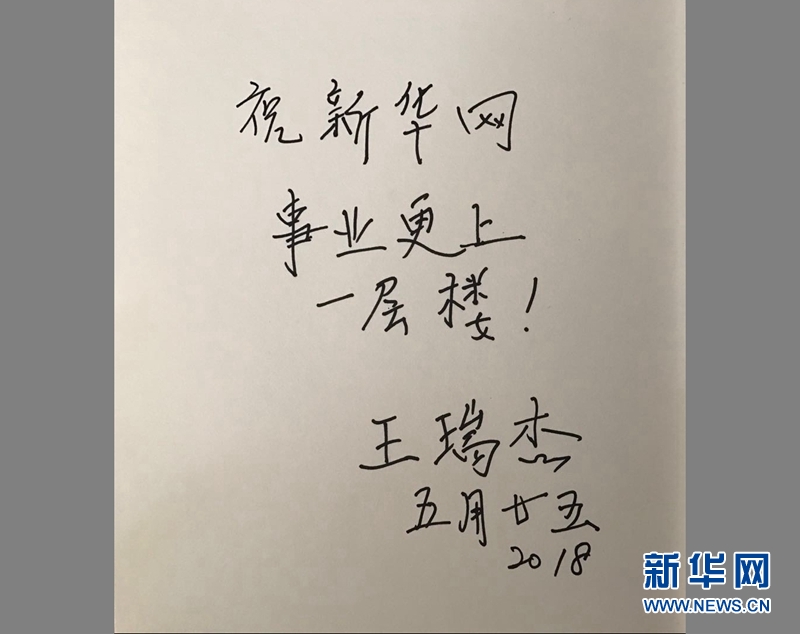 祝新华网
事业更上
一层楼！
王瑞杰
五月廿五
2018
新华网
WWW.NEWS.CN